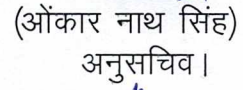 (ओंकार नाथ सिंह)
अनुसचिव।